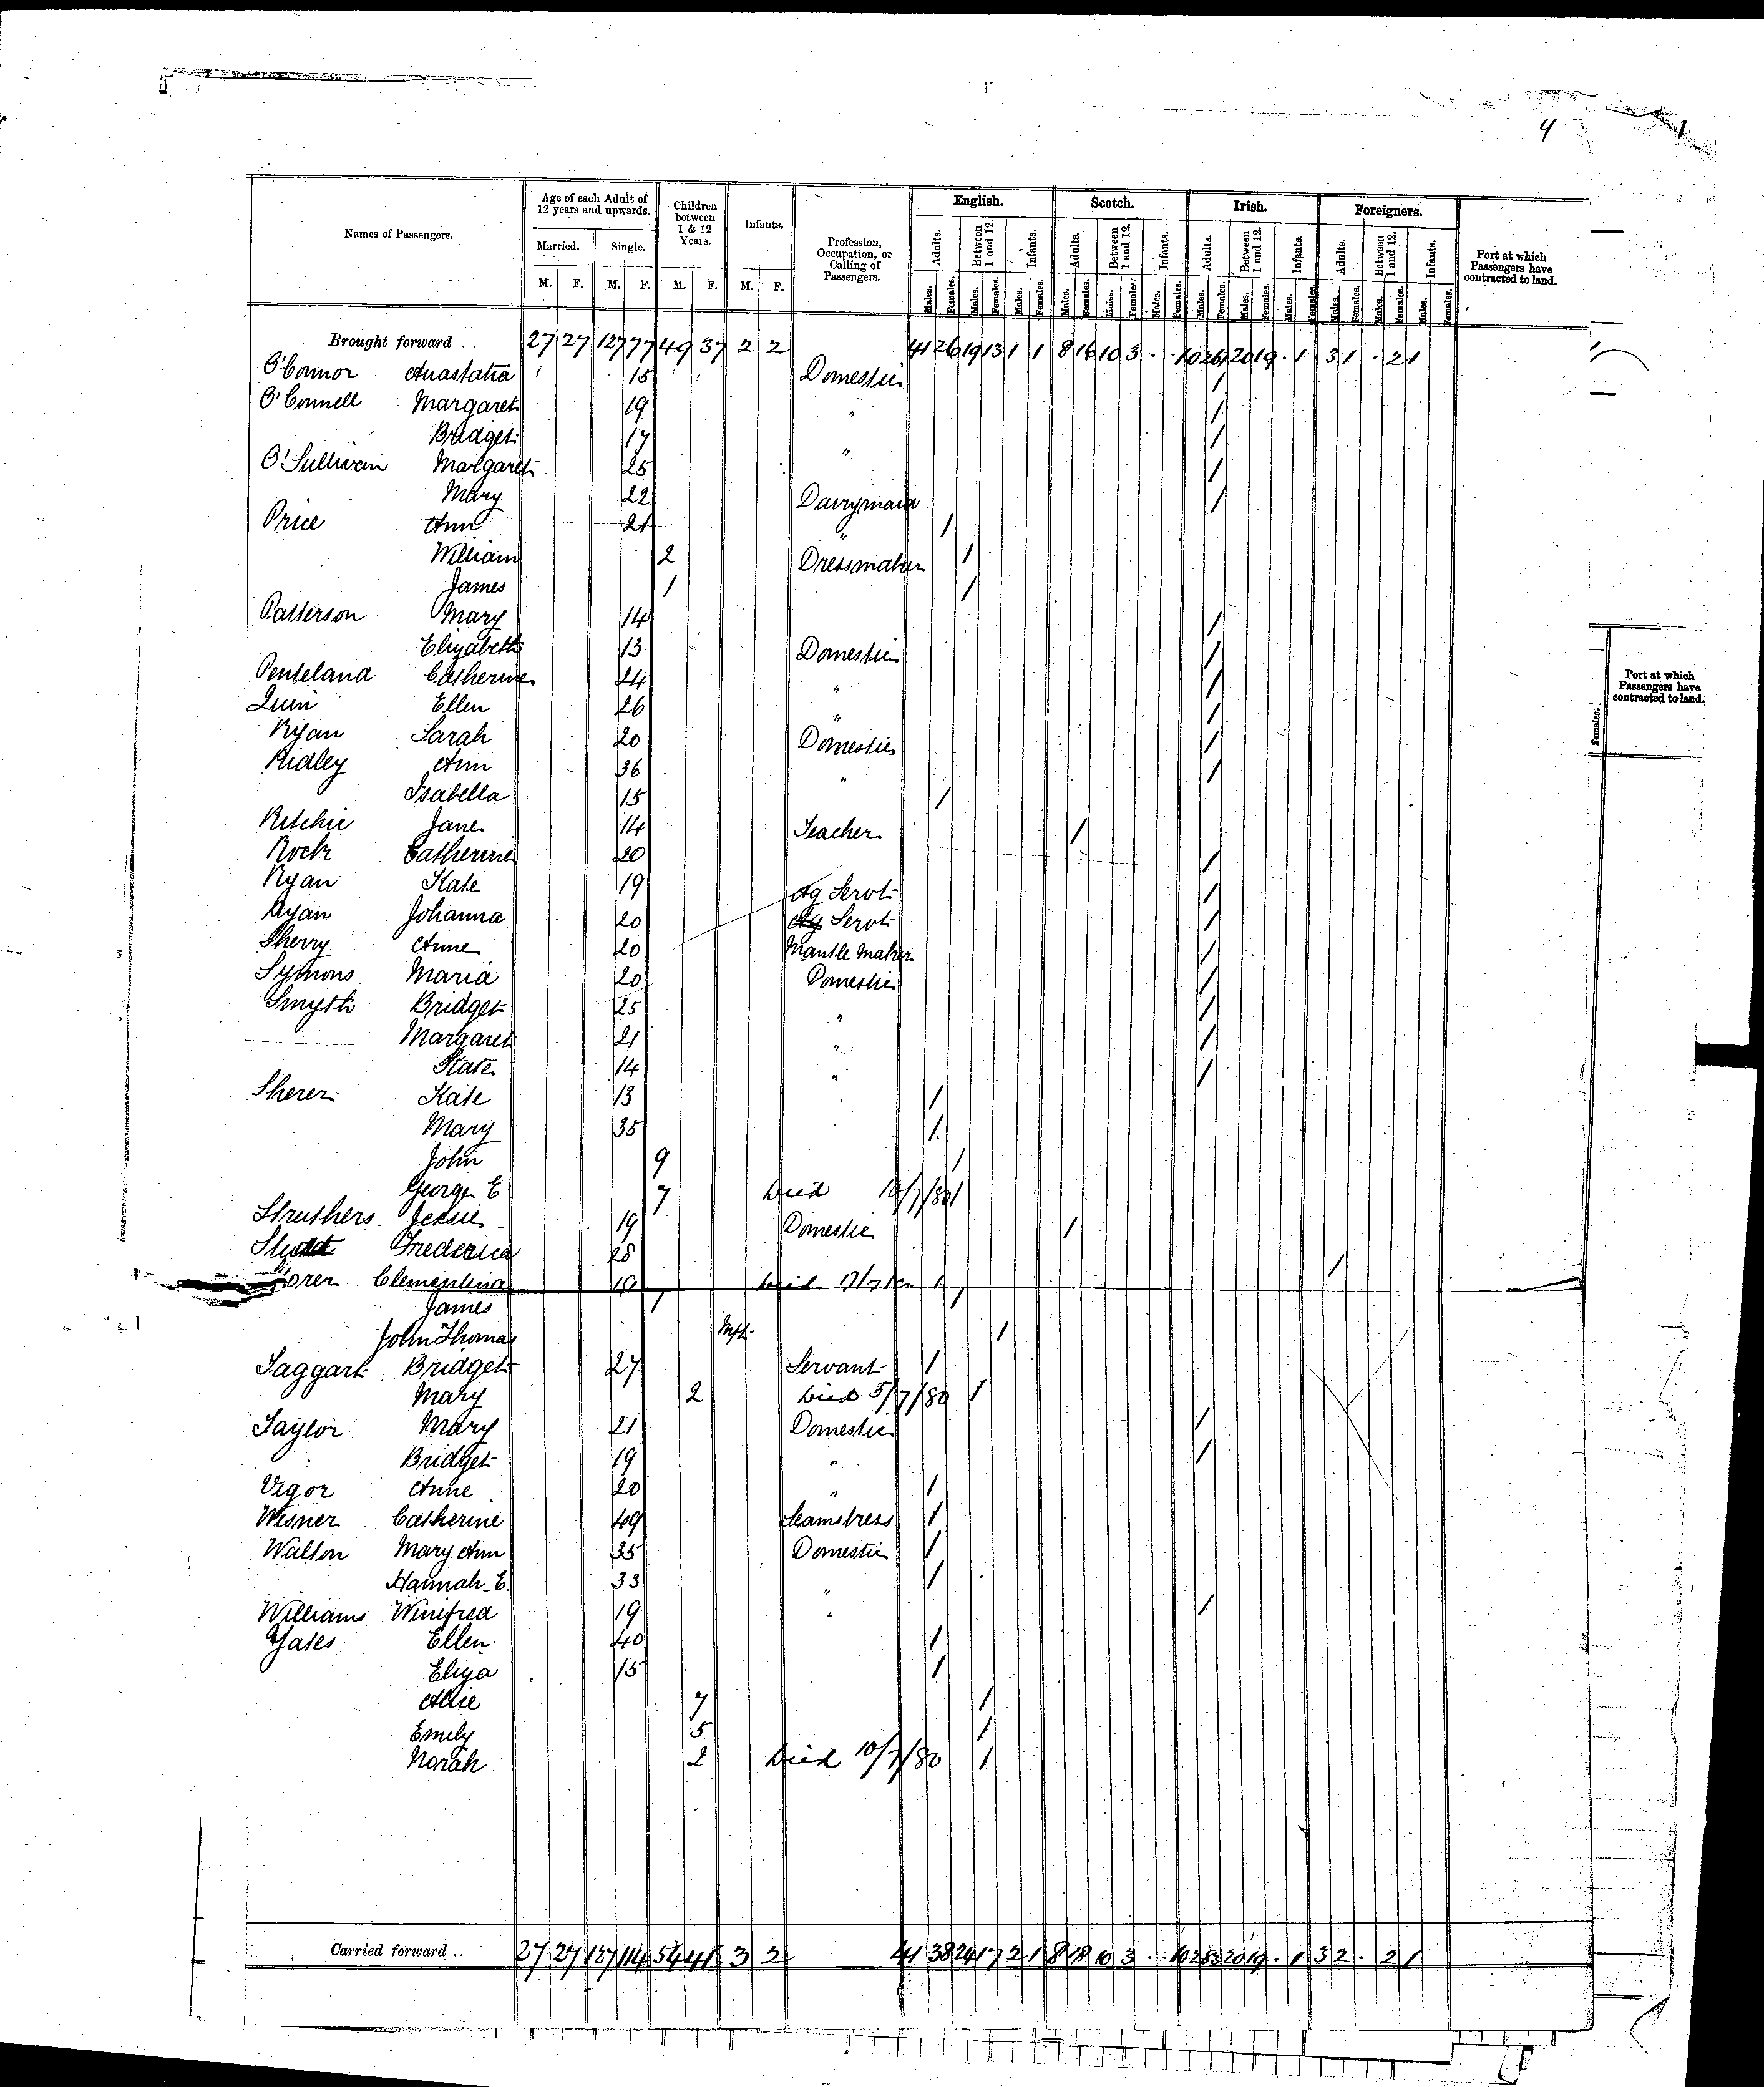 4
Names of Passengers.
Age of each Adult of 12 years and upwards.
Married. Single.
M. F. M. F.
Children between 1 & 12 Years.
M. F.
Infants.
M. F.
Profession, Occupation, or Calling of Passengers.
English. Scotch. Irish. Foreigners.
Adults. Between 1 and 12. Infants. Adults. Between 1 and 12. Infants. Adults. Between 1 and 12. Infants. Adults. Between 1 and 12. Infants.
Males. Females. Males. Females. Males. Females. Males. Females. Males. Females. Males. Females. Males. Females. Males. Females. Males. Females. Males. Females. Males. Females. Males. Females.
Port at which Passengers have contracted to land.
Brought forward .. 27 27 127 77 49 37 2 2 41 26 19 13 1 1 8 16 10 3 . . 20 19 . 1 3 1 . 2 1
O'Connor Anastatia 15 Domestic /
O'Connell Margaret 19 " /
Bridget 17 " /
O'Sullivan Margaret 25 /
Mary 22 Dairymaid /
Price Ann 21 " /
William 2 Dressmaker /
James 1 /
Patterson Mary 14 /
Elizabeth 13 Domestic /
Penteland Catherine 24 " /
Quin Ellen 26 " /
Ryan Sarah 20 Domestic /
Ridley Ann 36 " /
Isabella 15 /
Ritchie Jane 14 Teacher /
Rock Catherine 20 /
Ryan Kate 19 Ag Servt /
Ryan Johanna 20 Ag Servt /
Sherry Anne 20 Mantle Maker /
Symons Maria 20 Domestic /
Smyth Bridget 25 " /
Margaret 21 " /
Kate 14 " /
Sherer Kate 13 /
Mary 35 /
John 9 /
George E 7 Died /7/80 /
Struthers Jessie 19 Domestic /
Frederica 28 /
Clementina 19 Died /
James 1 /
John Thomas Inft. /
Taggart Bridget 27 Servant /
Mary 2 Died 5/7/80 /
Taylor Mary 21 Domestic /
Bridget 19 " /
Vigor Anne 20 " /
Wisner Catherine 49 Seamstress /
Walton Mary Ann 35 Domestic /
Hannah E. 33 " /
Williams Winifred 19 " /
Yates Ellen 40 /
Eliza 15 /
Allie 7 /
Emily 5 /
Norah 2 Died 10/7/80 /
Carried forward .. 27 27 127 114 54 41 3 2 41 38 24 17 2 1 8 18 10 3 . . 20 19 . 1 3 2 . 2 1
Port at which Passengers have contracted to land.
Females.